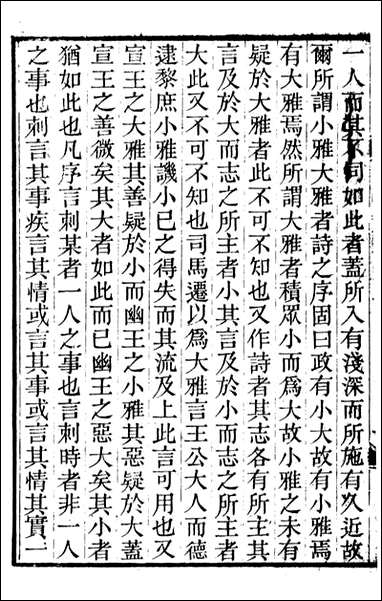 一人而其不同如此者蓋所入有淺深而所施有久近故
爾所謂小雅大雅者詩之序固曰政有小大故有小雅焉
有大雅焉然所謂大雅者積眾小而為大故小雅之未有
疑於大雅者此不可不知也又作詩者其志各有所主其
言及於大而志之所主者小其言及於小而志之所主者
大此又不可不知也司馬遷以為大雅言王公大人而德
逮黎庶小雅譏小己之得失而其流及上此言可用也又
宣王之大雅其善疑於小而幽王之小雅其惡疑於大蓋
宣王之善微矣其大者如此而已幽王之惡大矣其小者
猶如此也凡序言刺某者一人之事也言刺時者非一人
之事也刺言其事疾言其情或言其事或言其情其實一